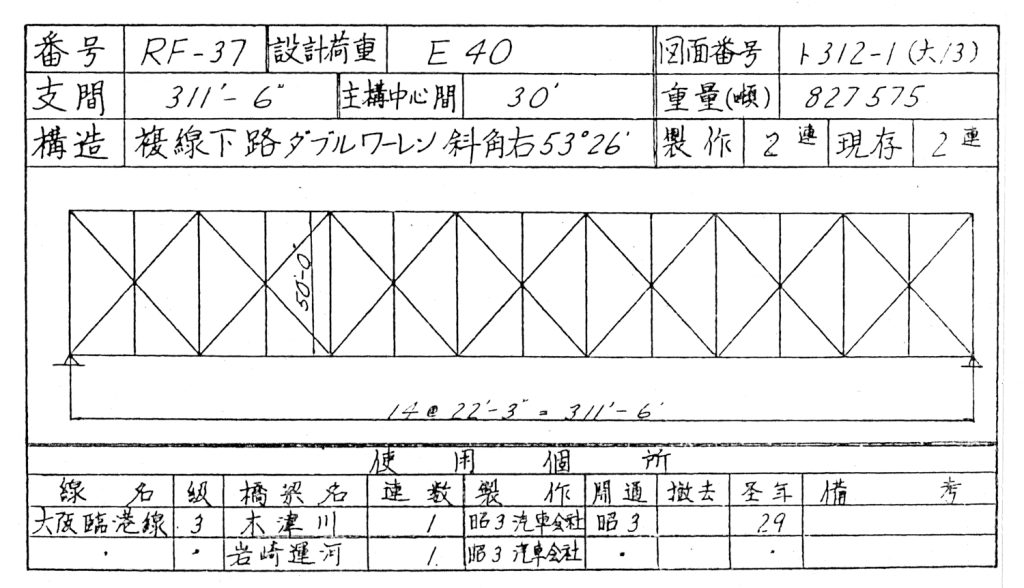 番号 RF-37 設計荷重 E40 図面番号 ト312-1(大13)
支間 311'-6" 主構中心間 30' 重量(噸) 827575
構造 複線下路ダブルワーレン斜角右53°26' 製作 2連 現存 2連
50'-0"
14@22'-3"=311'-6"
使用個所
線名 級 橋梁名 連数 製作 開通 撤去 圣年 備考
大阪臨港線 3 木津川 1 昭3汽車会社 昭3 29
〃 〃 岩崎運河 1 昭3汽車会社 〃 〃